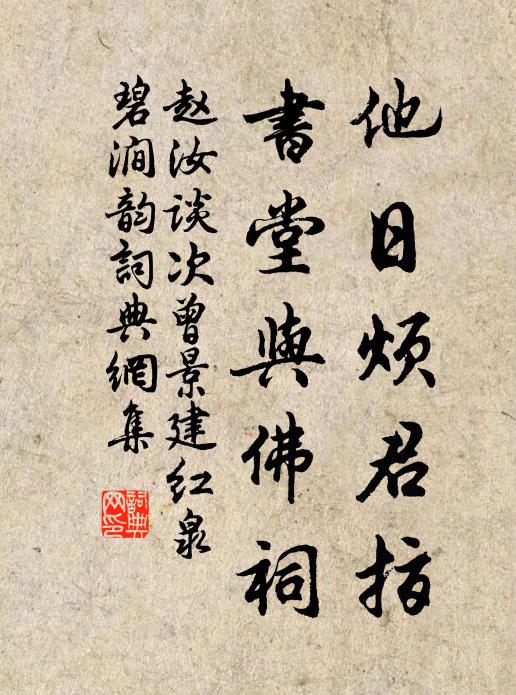 他日烦君指
書堂與佛祠
赵汝谈次曾景建红泉
碧涧韵詞典網集
詞典网印